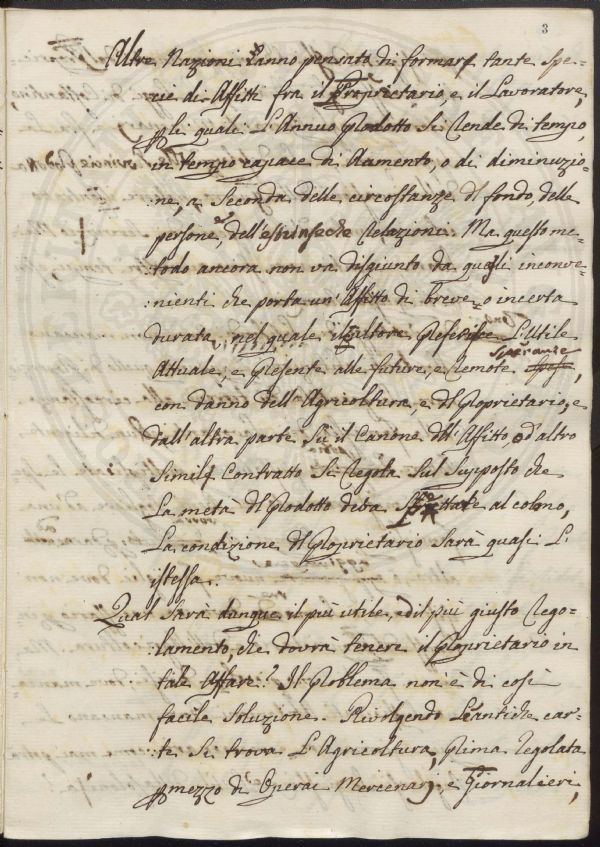 3
Altre Nazioni anno pensato di formare tante spe-
cie di Affitti fra il Proprietario, e il Lavoratore,
pli quali L'Annuo Prodotto si Rende di tempo,
in tempo capace di Aumento, o di diminuzio-
:ne, a Seconda delle circostanze dl fondo, delle
persone, dell'estrinseche Relazioni. Ma questo me-
todo ancora non va disgiunto da quegli inconve-
:nienti che porta un'Affitto di breve, o incerta
durata, nel quale il Cultore Preferisce L'Utile
Attuale, e Presente alle future, e Remote Speranze,
con danno dell'Agricoltura, e dl Proprietario, e
dall'altra parte Se il Canone dell'Affitto, o d'altro
Simile Contratto Si Regola Sul Supposto che
La metà dl Prodotto deba Spettare al colono,
La condizione dl Proprietario Sarà quasi L'
istessa.
Qual Sarà dunque il più utile, ed il più giusto Rego-
:lamento, che dovrà tenere il Proprietario in
tale Affare? Il Problema non è di così
facile Soluzione. Rivolgendo Le antiche car-
:te Si trova L'Agricoltura, Prima Regolata
p mezzo di Operai Mercenarj, e Giornalieri,